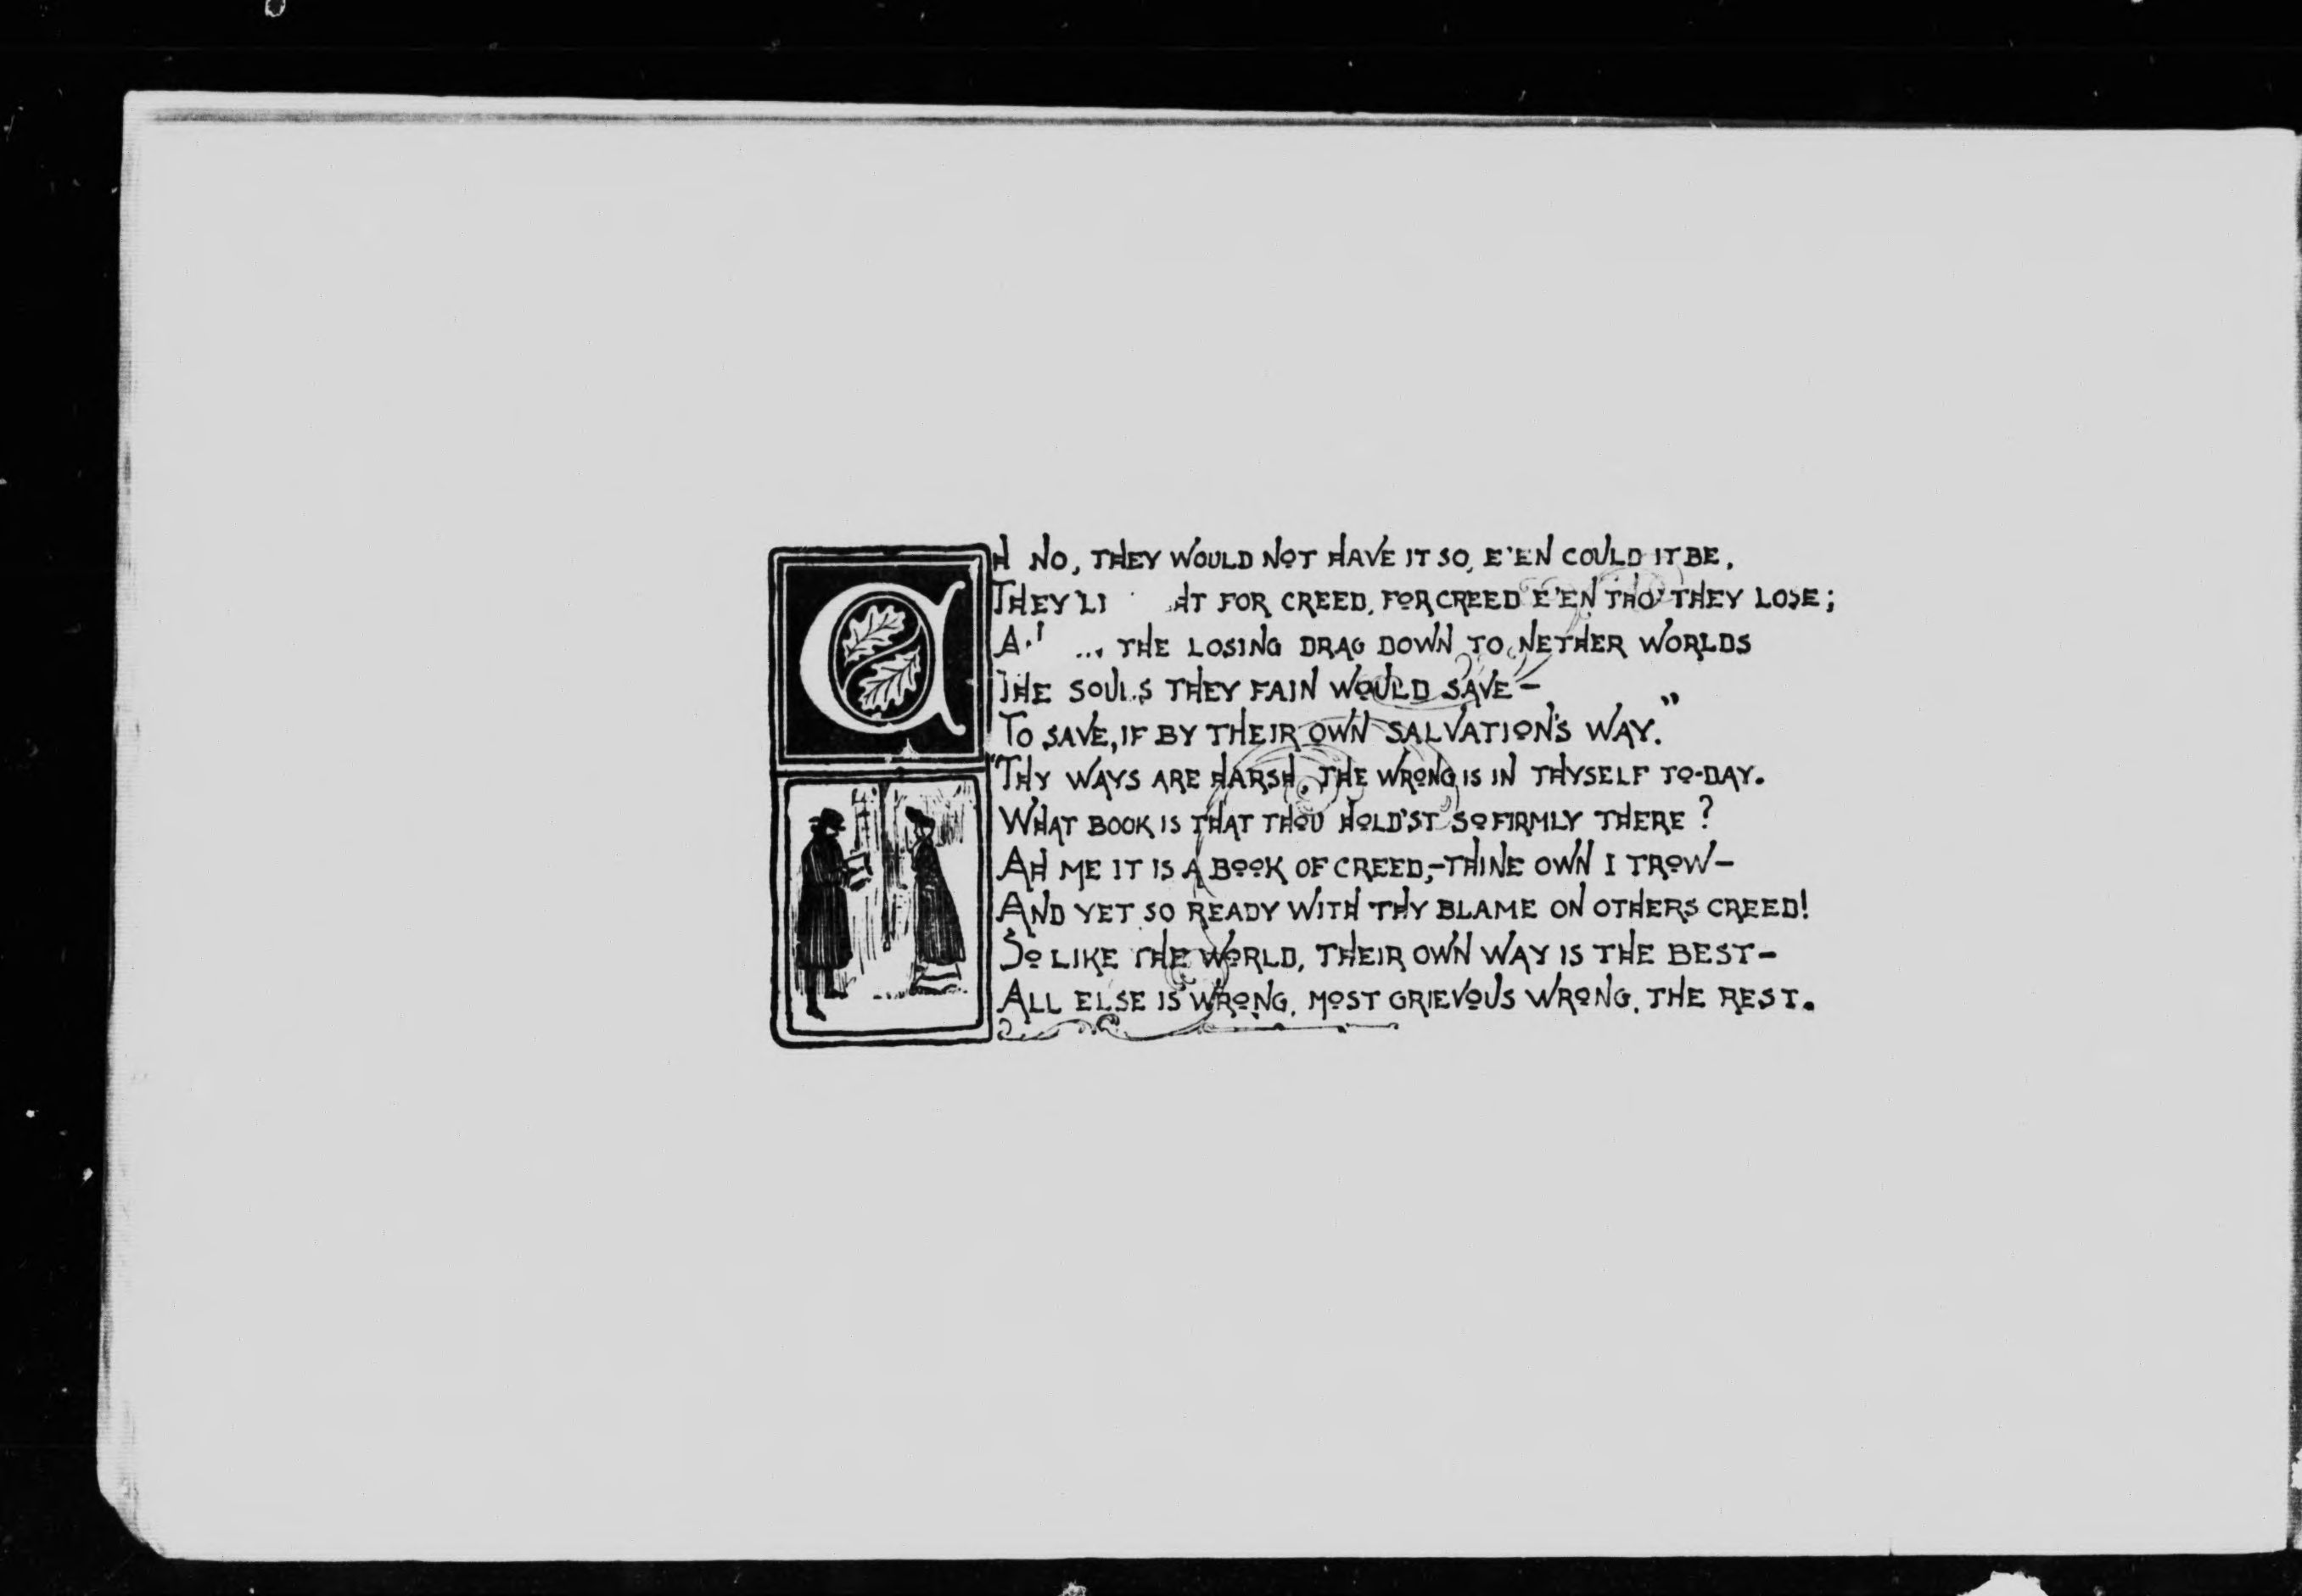 AH NO, THEY WOULD NOT HAVE IT SO, E'EN COULD IT BE,
THEY'LL FOR CREED, FOR CREED E'EN THO' THEY LOSE;
THE LOSING DRAG DOWN TO NETHER WORLDS
THE SOULS THEY FAIN WOULD SAVE—
TO SAVE, IF BY THEIR OWN SALVATION'S WAY."
"THY WAYS ARE HARSH, THE WRONG IS IN THYSELF TO-DAY.
WHAT BOOK IS THAT THOU HOLD'ST SO FIRMLY THERE?
AH ME IT IS A BOOK OF CREED,—THINE OWN I TROW—
AND YET SO READY WITH THY BLAME ON OTHERS CREED!
SO LIKE THE WORLD, THEIR OWN WAY IS THE BEST—
ALL ELSE IS WRONG, MOST GRIEVOUS WRONG, THE REST.